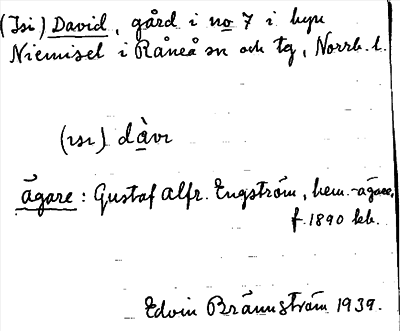 (Isi) David, gård i no 7 i byn
Niemisel i Råneå sn och tg, Norrb. l.
(ısı) dàvı
ägare: Gustaf Alfr. Engström, hem.-ägare,
f. 1890 ibb.
Edvin Brännström 1939.